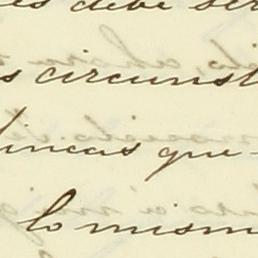 es debe ser
s circunst
lineas que-
lo mism